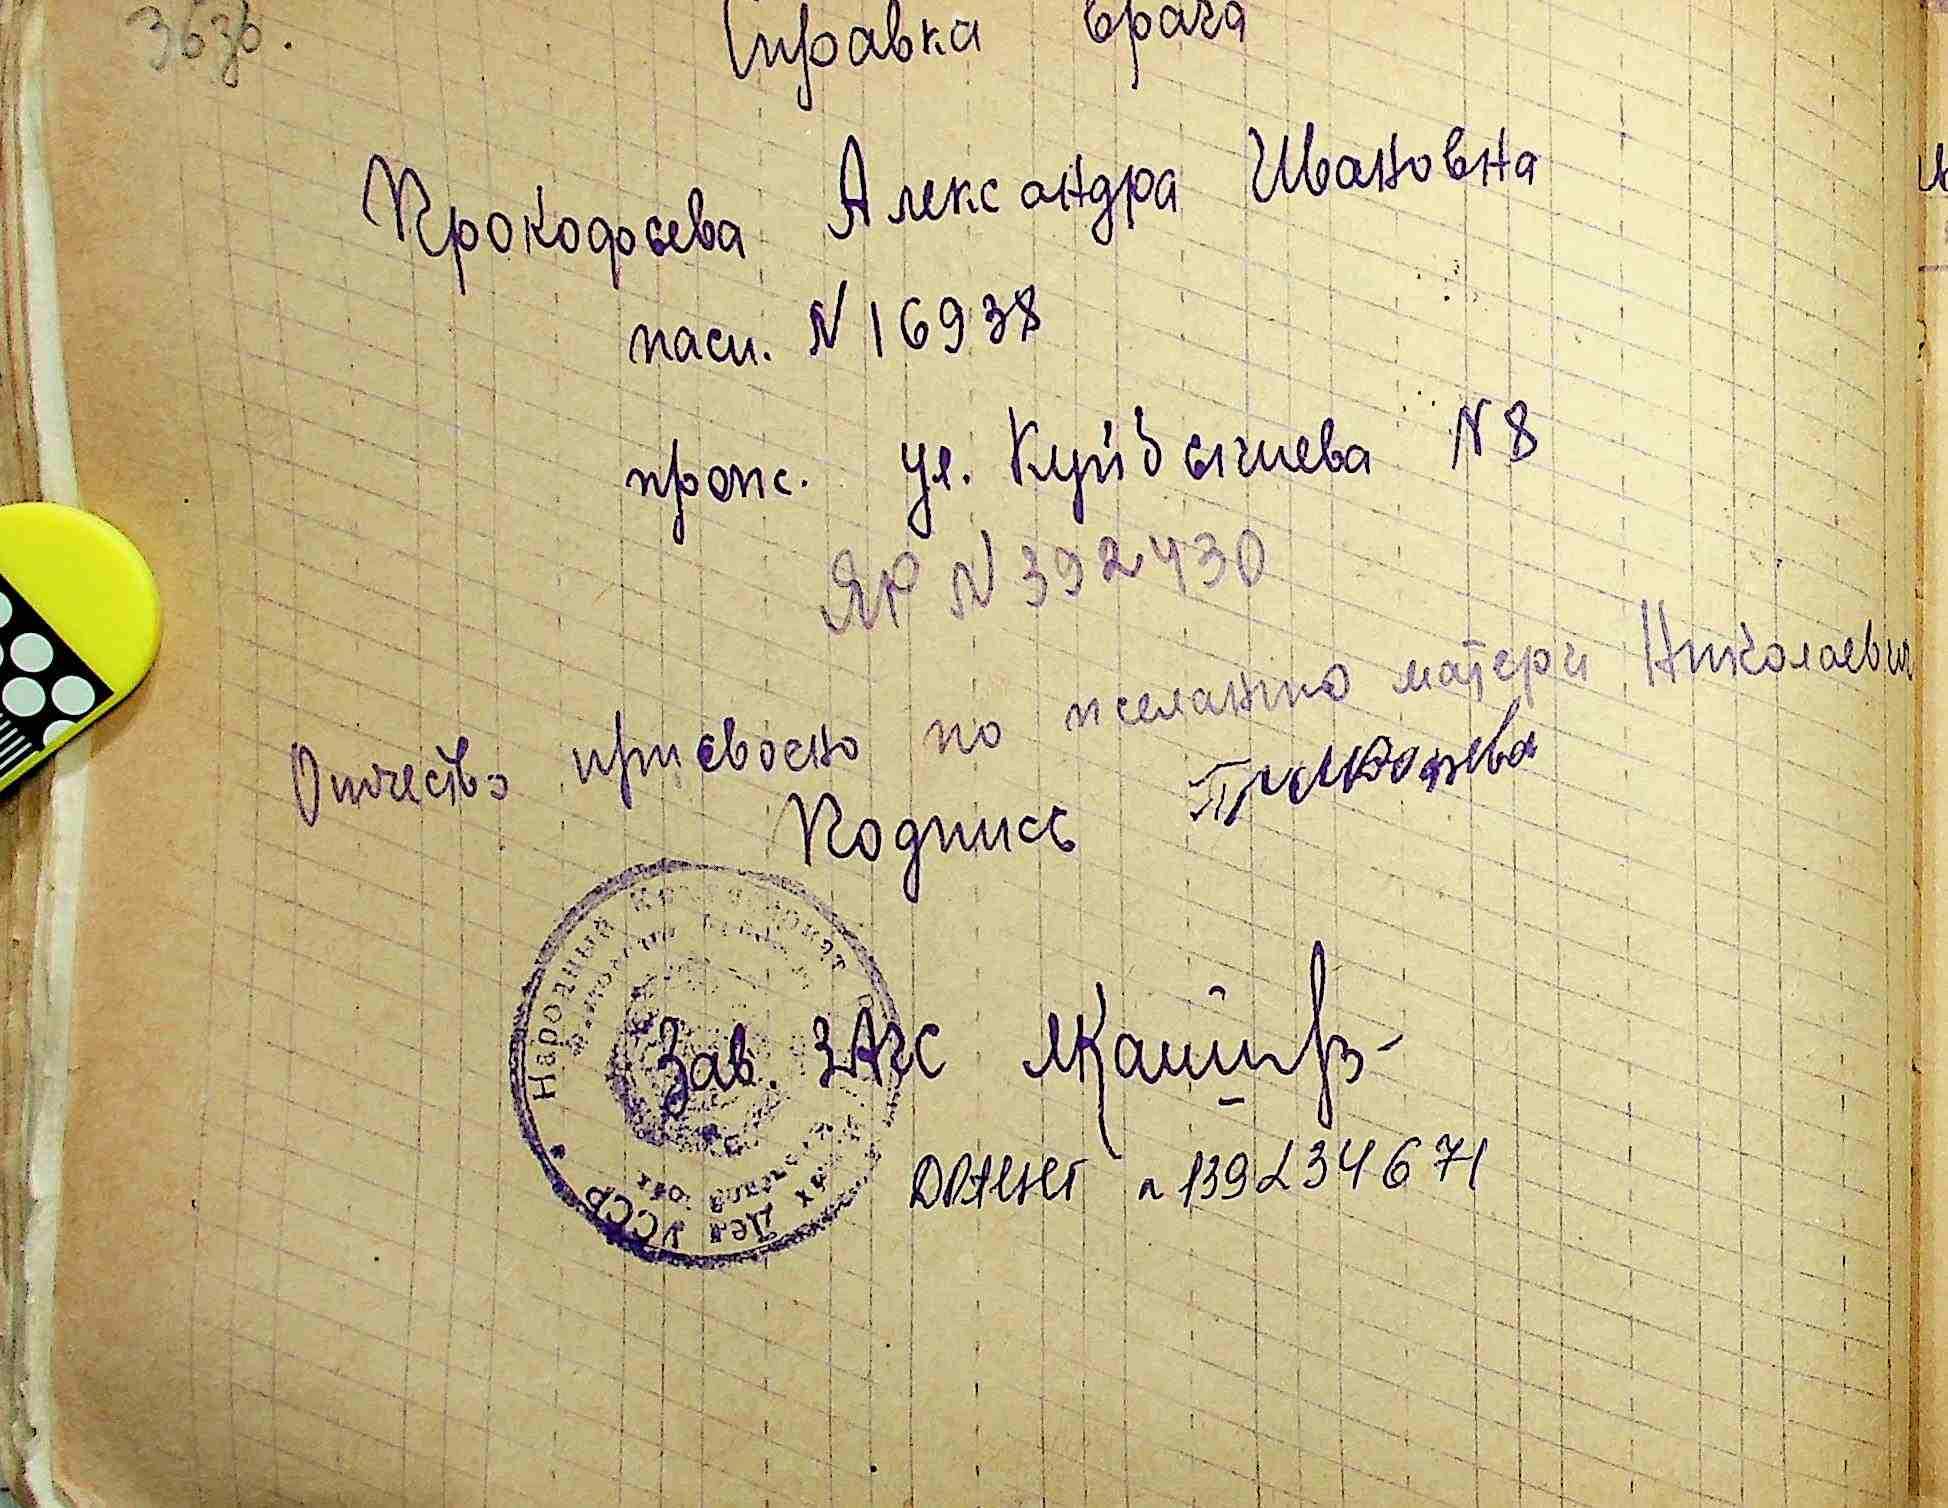 363об.
Справка врача
Прокофьева Александра Ивановна
пасп. N 16938
пропс. ул. Куйбышева N 8
ЯР N 392430
Отчество присвоено по желанию матери Николаевич
Подпись Прокофьева
Народный Комиссариат
Зав. ЗАГС
N 139234671
Дел УССР